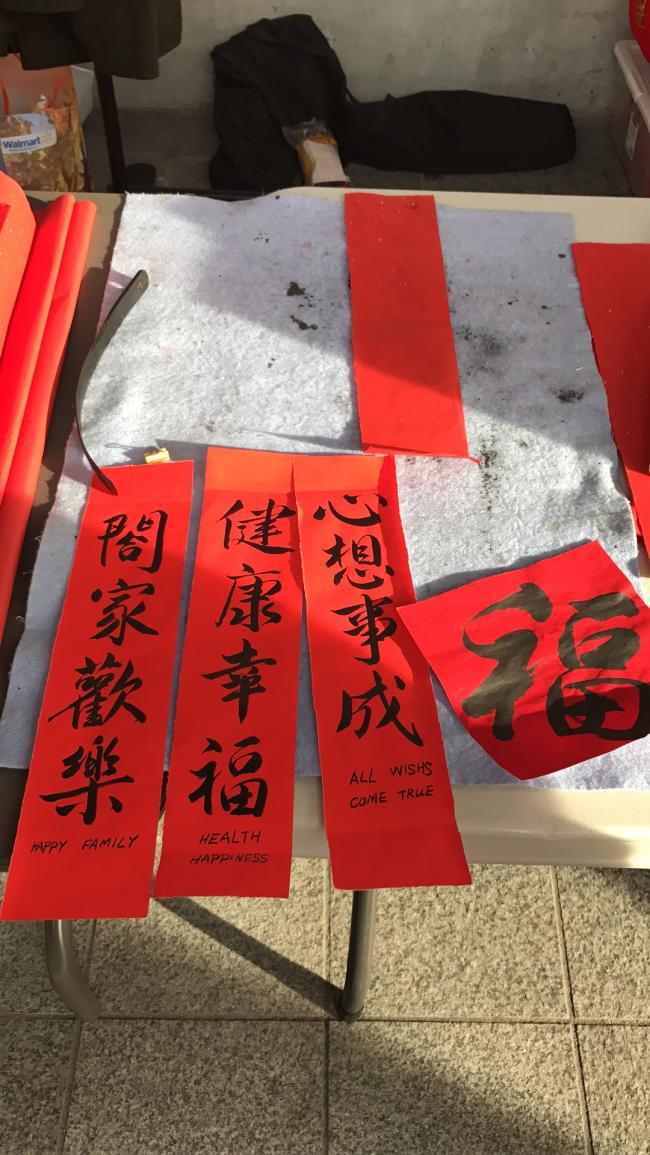 Walmart
閤家歡樂
HAPPY FAMILY
健康幸福
HEALTH
HAPPINESS
心想事成
ALL WISHS
COME TRUE
福